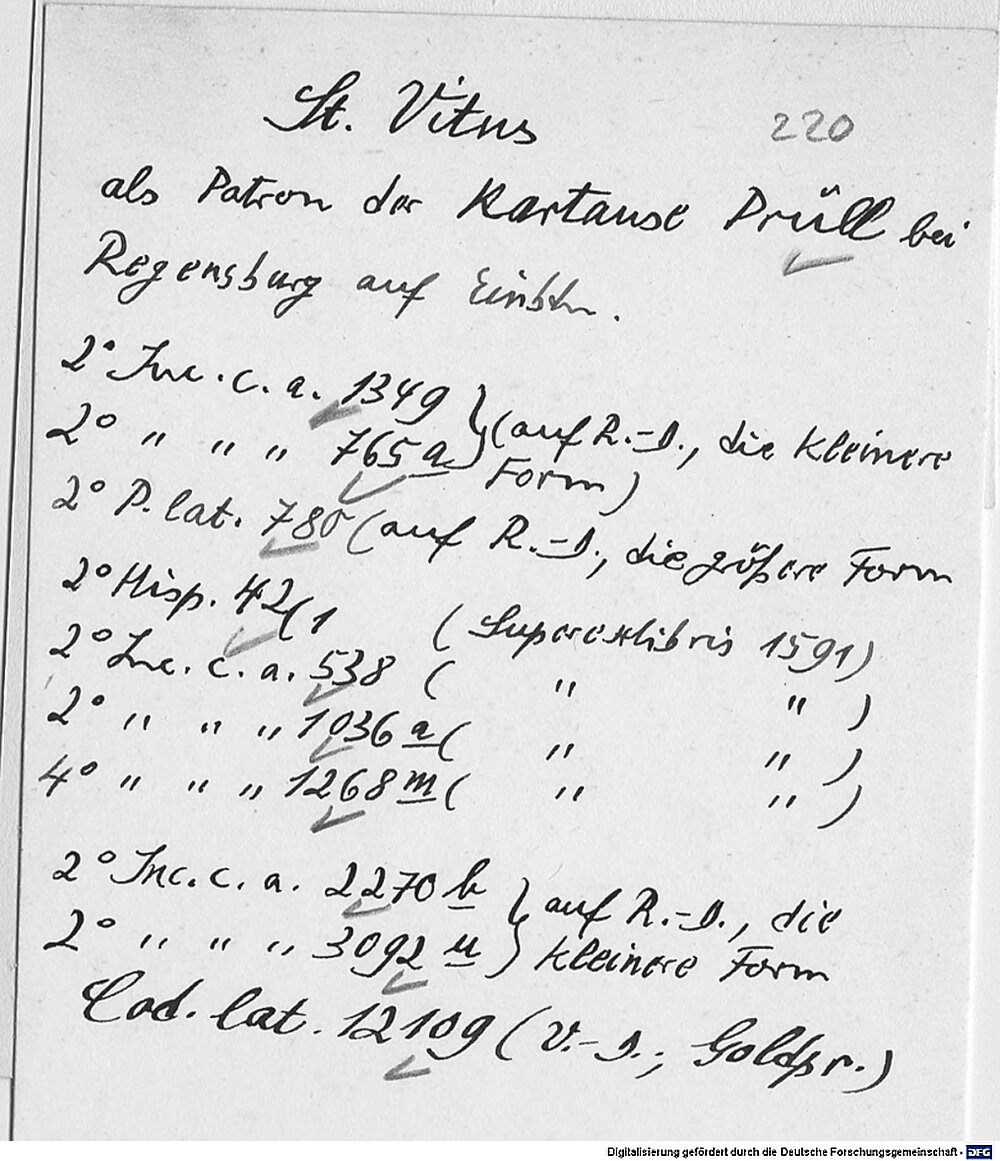 St. Vitus 220
als Patron der Kartause Prüll bei
Regensburg auf Einbdn.
2° Inc. c. a. 1349 } (auf R.-D., die kleinere
2° " " " 765 a } Form)
2° P. lat. 780 (auf R.-D., die größere Form
2° Hisp. 42(1 (Superexlibris 1591)
2° Inc. c. a. 538 ( " " )
2° " " " 1036 a ( " " )
4° " " " 1268 m ( " " )
2° Inc. c. a. 2270 b } auf R.-D., die
2° " " " 3092 u } kleinere Form
Cod. lat. 12109 (V.-D., Goldpr.)
Digitalisierung gefördert durch die Deutsche Forschungsgemeinschaft - DFG